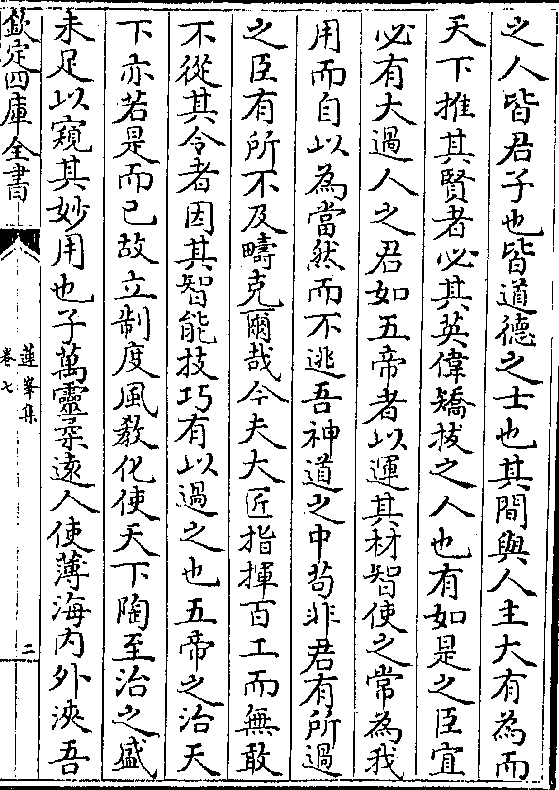 之人皆君子也皆道德之士也其間與人主大有為而
天下推其賢者必其英偉矯拔之人也有如是之臣宜
必有大過人之君如五帝者以運其材智使之常為我
用而自以為當然而不逃吾神道之中苟非君有所過
之臣有所不及疇克爾哉今夫大匠指揮百工而無敢
不從其令者因其智能技巧有以過之也五帝之治天
下亦若是而已故立制度風教化使天下陶至治之盛
未足以窺其妙用也子萬靈柔遠人使薄海內外浹吾
欽定四庫全書
蓮峯集
卷七
二